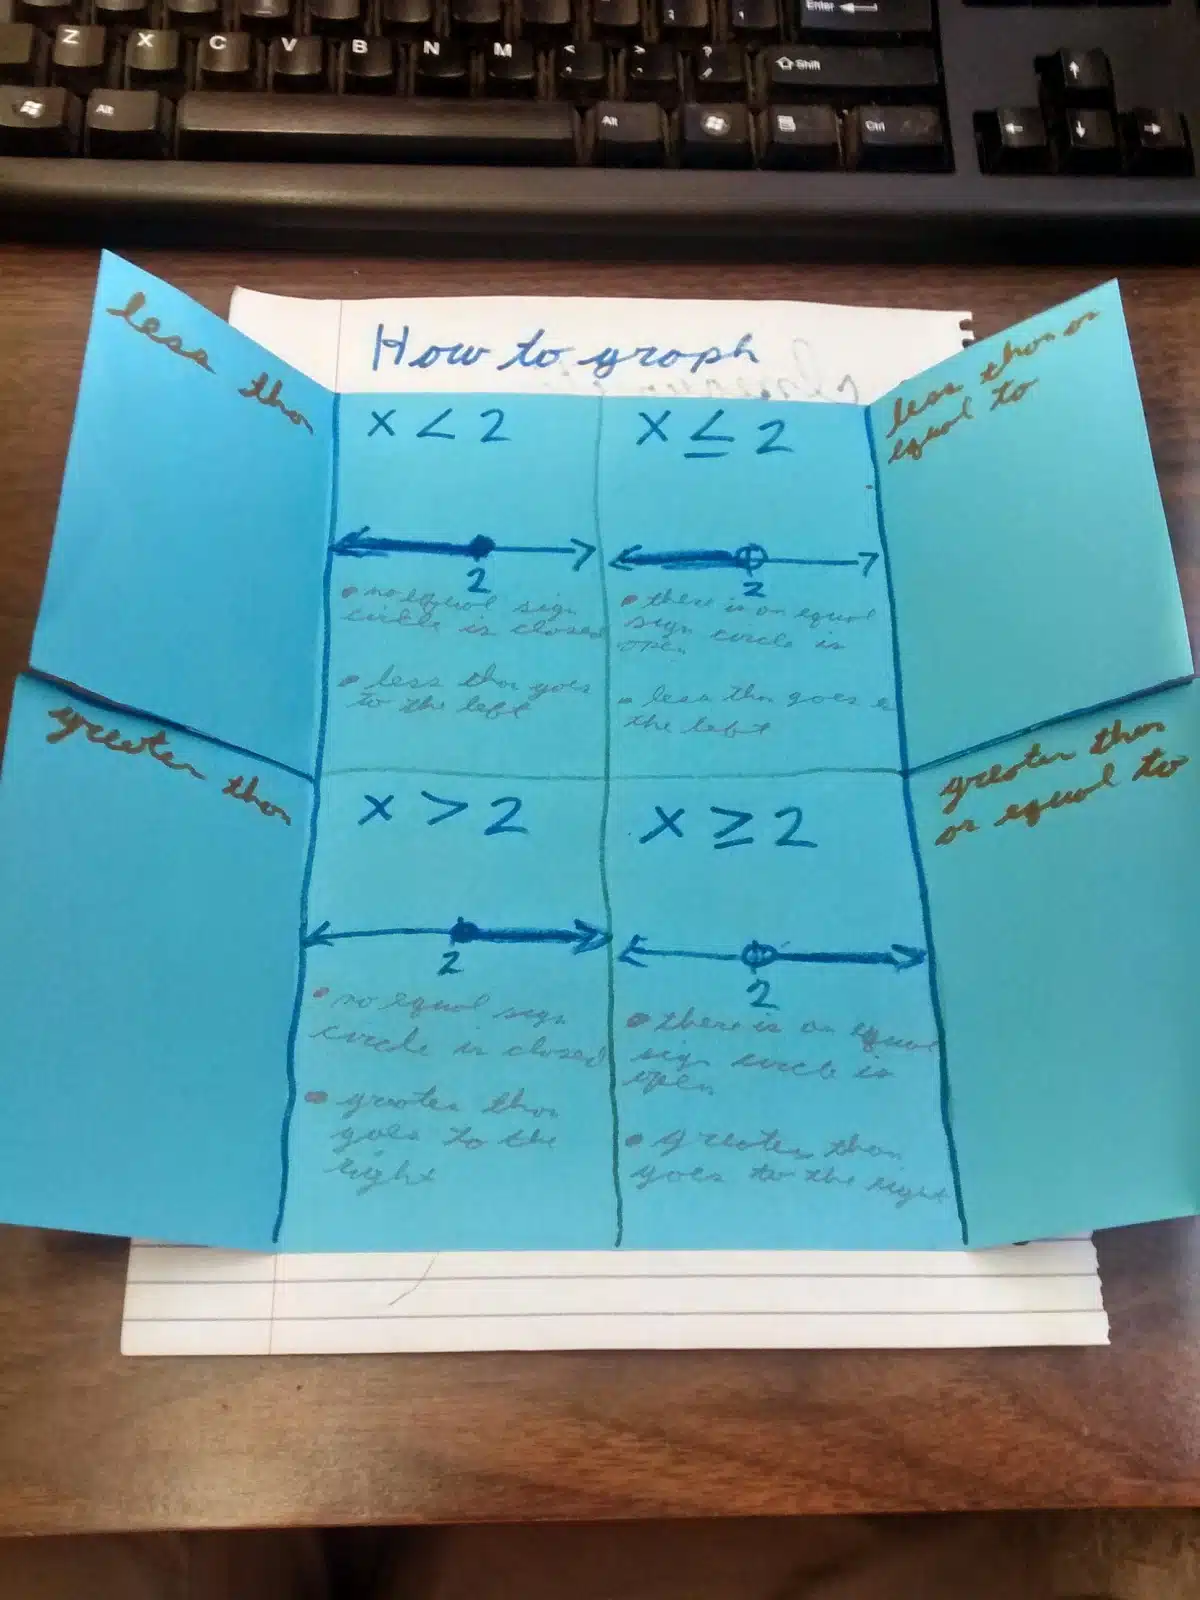 Enter
Z X C V B N M < > ?
Shift
Alt Alt Ctrl
How to graph
less than
x < 2
2
• no equal sign
circle is closed
• less than goes
to the left
less than or
equal to
x ≤ 2
2
• there is an equal
sign circle is
open
• less than goes
the left
greater than
x > 2
2
• no equal sign
circle is closed
• greater than
goes to the
right
greater than
or equal to
x ≥ 2
2
• there is an equal
sign circle is
open
• greater than
goes to the right